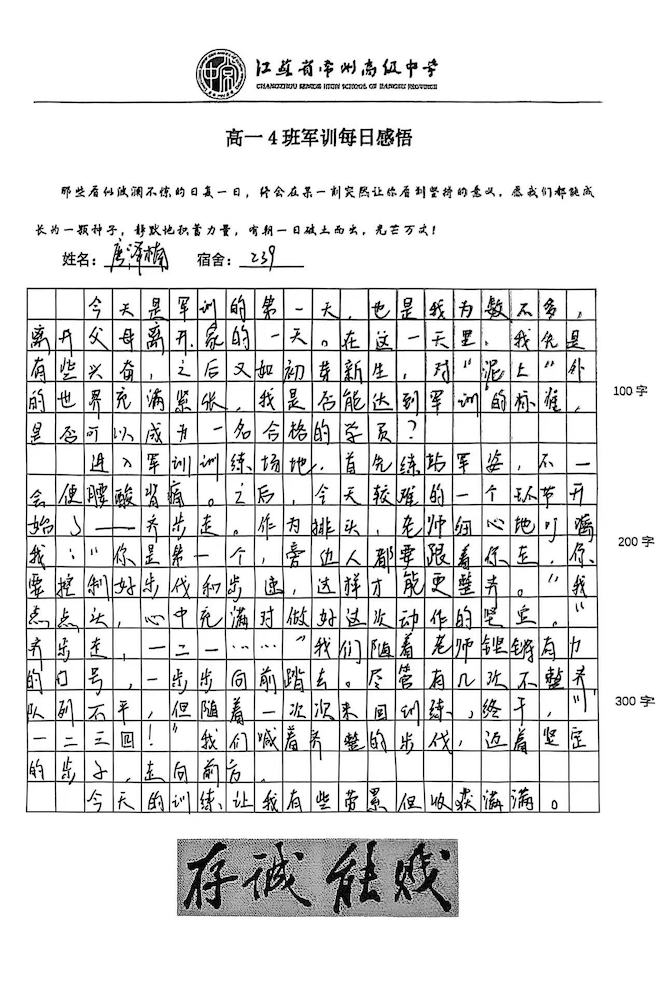 江苏省常州高级中学
CHANGZHOU SENIOR HIGH SCHOOL OF JIANGSU PROVINCE
高一4班军训每日感悟
那些看似波澜不惊的日复一日，终会在某一刻突然让你看到坚持的意义，愿我们都能成
长为一颗种子，静默地积蓄力量，有朝一日破土而出，光芒万丈！
姓名：唐泽楠 宿舍：239
今天是军训的第一天，也是我为数不多，
离开父母离开家的一天。在这一天里，我先是
有些兴奋，之后又如初芽新生，对“泥土”外
的世界充满紧张，我是否能达到军训的标准，
100字
是否可以成为一名合格的学员？
进入军训训练场地，首先练站军姿，不一
会便腰酸背痛。之后，今天较难的一个环节开
始了——齐步走。作为排头，老师细心地叮嘱
我：“你是第一个，旁边人都要跟着你走，你
200字
要控制好步伐和步速，这样才能更整齐。”我
点点头，心中充满对做好这次动作的坚定。“
齐步走，一二一……”我们随着老师铿锵有力
的口号，一步步向前踏去。尽管有几次不整齐，
队列不平，但随着一次次来回训练，终于，“
300字
一二三四！”我们喊着齐整的步伐，迈着坚定
的步子，走向前方。
今天的训练让我有些劳累但收获满满。
存诚能贱